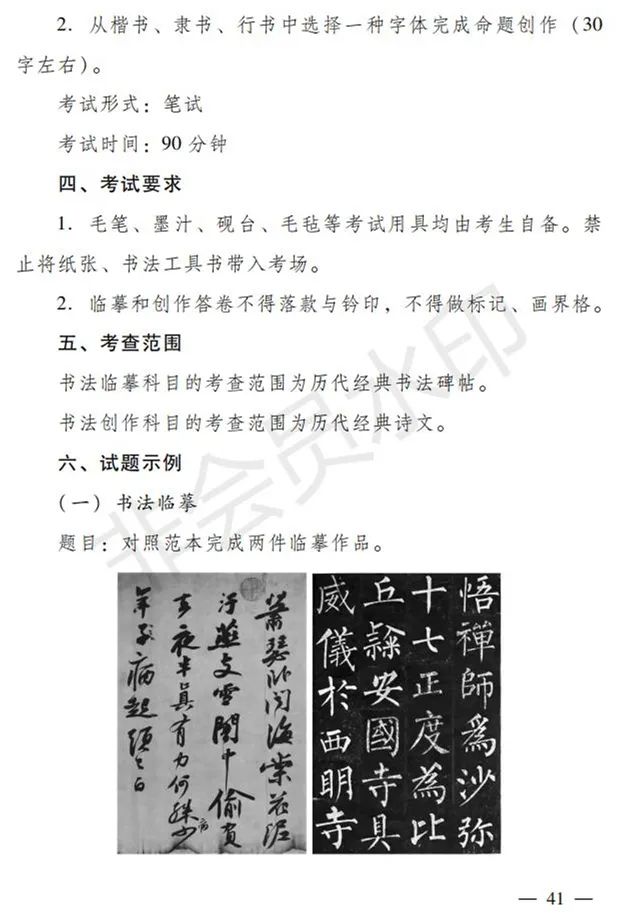 2. 从楷书、隶书、行书中选择一种字体完成命题创作（30
字左右）。
考试形式：笔试
考试时间：90 分钟
四、考试要求
1. 毛笔、墨汁、砚台、毛毡等考试用具均由考生自备。禁
止将纸张、书法工具书带入考场。
2. 临摹和创作答卷不得落款与钤印，不得做标记、画界格。
五、考查范围
书法临摹科目的考查范围为历代经典书法碑帖。
书法创作科目的考查范围为历代经典诗文。
六、试题示例
（一）书法临摹
题目：对照范本完成两件临摹作品。
蕭瑟卧聞海棠花泥
汙燕支雪闇中偷負
去夜半真有力何殊少
病
年子病起頭已白
悟禪師爲沙弥
十七正度為比
丘隸安國寺具
威儀於西明寺
— 41 —
非会员水印